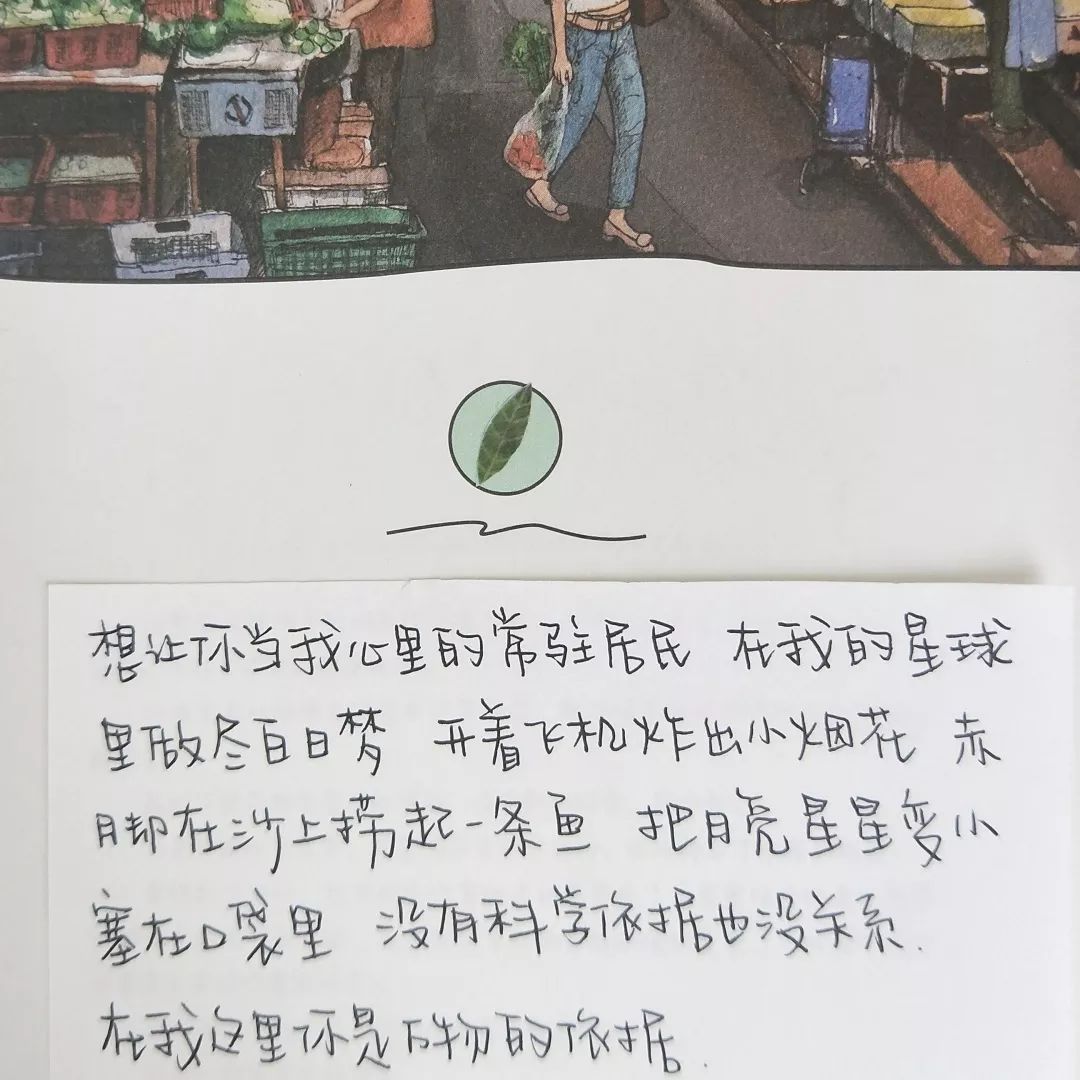 想让你当我心里的常驻居民 在我的星球
里做尽白日梦 开着飞机炸出小烟花 赤
脚在沙上捞起一条鱼 把月亮星星变小
塞在口袋里 没有科学依据也没关系.
在我这里你是万物的依据.